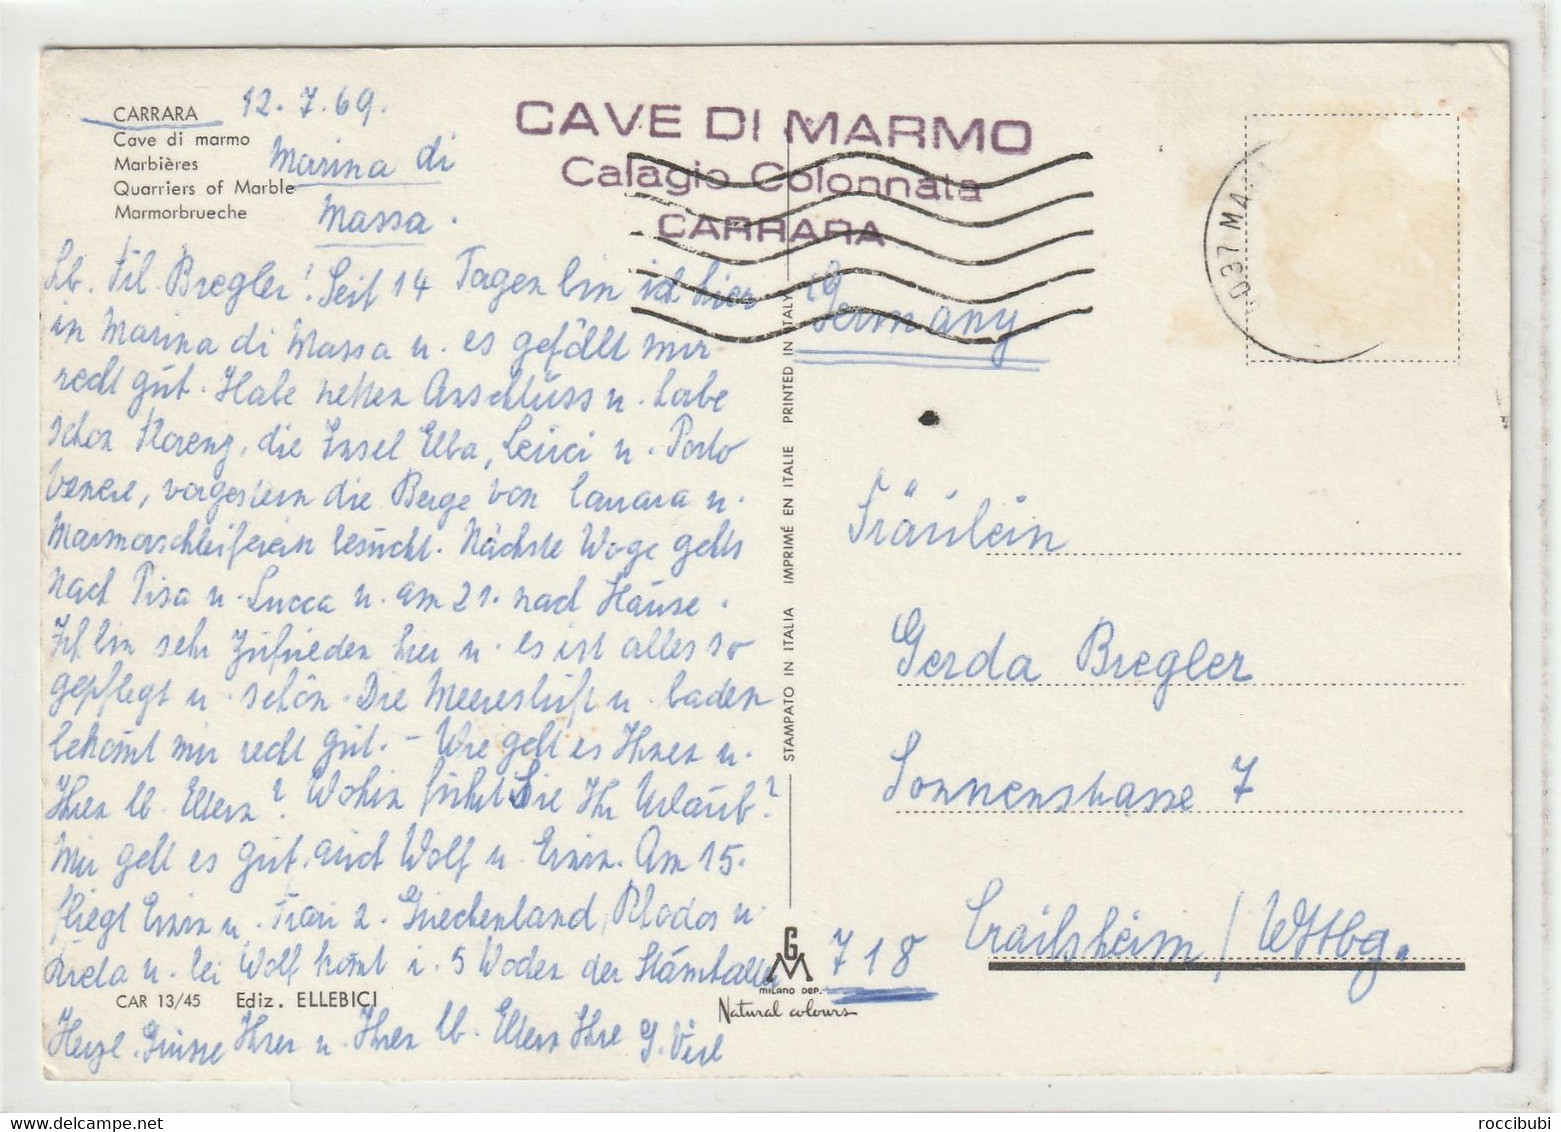 CARRARA 12.7.69.
Cave di marmo
Marbières
Quarriers of Marble
Marmorbrueche
Marina di
Massa.
CAVE DI MARMO
Calagio Colonnata
CARRARA
037 MA
Lb. Frl. Bregler! Seit 14 Tagen bin ich hier
in Marina di Massa u. es gefällt mir
recht gut. Habe netten Anschluss u. habe
schon Florenz, die Insel Elba, Lerici u. Porto
Venere, vorgestern die Berge von Carrara u.
Marmorschleifereien besucht. Nächste Woge gehts
nach Pisa u. Lucca u. am 21. nach Hause.
Ich bin sehr zufrieden hier u. es ist alles so
gepflegt u. schön. Die Meeresluft u. baden
bekomt mir recht gut. – Wie geht es Ihnen u.
Ihren lb. Eltern? Wohin führt Sie Ihr Urlaub?
Mir geht es gut, auch Wolf u. Erwin. Am 15.
fliegt Erwin u. Frau n. Griechenland, Rhodos u.
Kreta u. bei Wolf komt i. 5 Wochen der Stamhalter
Herzl. Grüsse Ihnen u. Ihren lb. Eltern Ihre G.
CAR 13/45 Ediz. ELLEBICI
STAMPATO IN ITALIA IMPRIMÉ EN ITALIE PRINTED IN ITALY
GM
MILANO DEP.
Natural colours
Germany.
Fräulein
Gerda Bregler
Sonnenstrasse 7
718 Crailsheim / Wttbg.
roccibubi